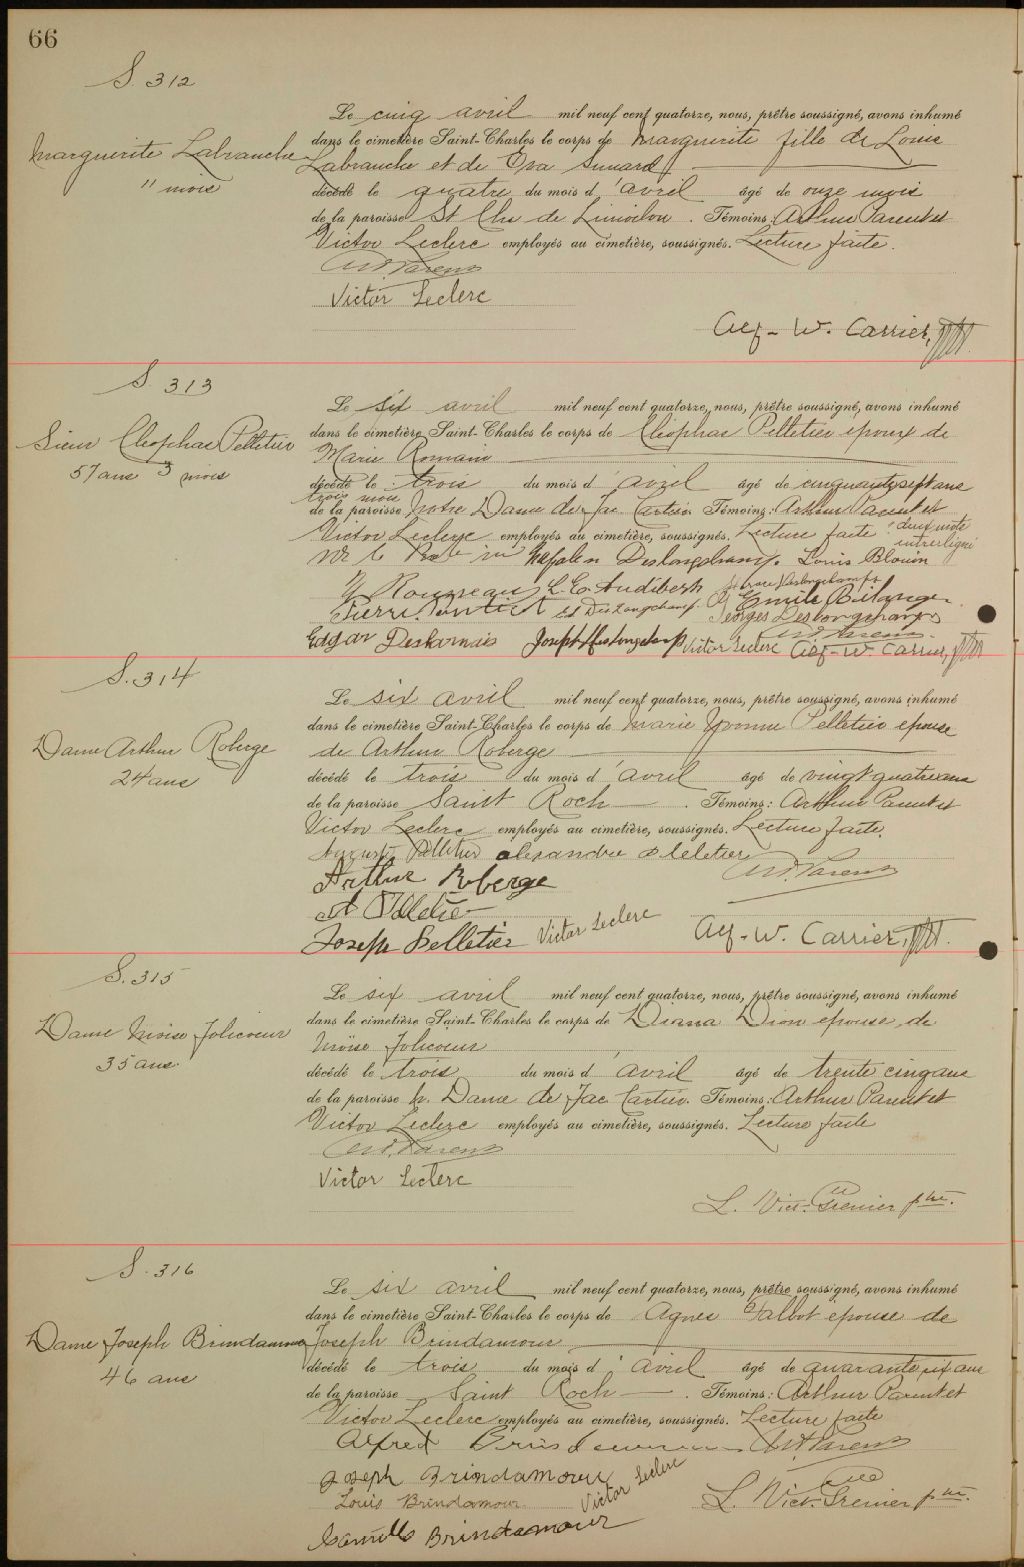 66
S. 312
Marguerite Labranche
11 mois
Le cinq avril mil neuf cent quatorze, nous, prêtre soussigné, avons inhumé
dans le cimetière Saint-Charles le corps de Marguerite fille de Louis
Labranche et de Eva Simard
décédé le quatre du mois d'avril âgé de onze mois
de la paroisse St Chs de Limoilou. Témoins: Arthur Parent et
Victor Leclerc employés au cimetière, soussignés. Lecture faite.
Art. Parent
Victor Leclerc
Alf-W. Carrier, ptre.
S. 313
Sieur Cléophas Pelletier
57 ans 3 mois
Le six avril mil neuf cent quatorze, nous, prêtre soussigné, avons inhumé
dans le cimetière Saint-Charles le corps de Cléophas Pelletier epoux de
Marie Romain
décédé le trois du mois d'avril âgé de cinquante sept ans
trois mois
de la paroisse Notre Dame de Jac. Cartier Témoins: Arthur Parent et
Victor Leclerc employés au cimetière, soussignés. Lecture faite. deux mots
interligné
Deslongchamps. Louis Blouin
Rousseau L. E. Audibert Horace Deslongchamps
Pierre Emile Bélanger
Deslongchamps Georges Deslongchamps
Art. Parent
Edgar Desharnais Joseph Deslongchamps Victor Leclerc Alf-W. Carrier, ptre
S. 314
Dame Arthur Roberge
24 ans
Le six avril mil neuf cent quatorze, nous, prêtre soussigné, avons inhumé
dans le cimetière Saint-Charles le corps de Marie Yvonne Pelletier epouse
de Arthur Roberge
décédé le trois du mois d'avril âgé de vingt quatre ans
de la paroisse Saint Roch. Témoins: Arthur Parent et
Victor Leclerc employés au cimetière, soussignés. Lecture faite.
Auguste Pelletier alexandre Pelletier
Art. Parent
Arthur Roberge
A Pelletier
Joseph Pelletier Victor Leclerc Alf-W. Carrier, ptre.
S. 315
Dame Moïse Jolicoeur
35 ans
Le six avril mil neuf cent quatorze, nous, prêtre soussigné, avons inhumé
dans le cimetière Saint-Charles le corps de Diana Dion epouse de
Moïse Jolicoeur
décédé le trois du mois d'avril âgé de trente cinq ans
de la paroisse N. Dame de Jac Cartier. Témoins: Arthur Parent et
Victor Leclerc employés au cimetière, soussignés. Lecture faite
Art. Parent
Victor Leclerc
L. Vict. Grenier ptre.
S. 316
Dame Joseph Brindamour
46 ans
Le six avril mil neuf cent quatorze, nous, prêtre soussigné, avons inhumé
dans le cimetière Saint-Charles le corps de Agnes Talbot epouse de
Joseph Brindamour
décédé le trois du mois d'avril âgé de quarante six ans
de la paroisse Saint Roch. Témoins: Arthur Parent et
Victor Leclerc employés au cimetière, soussignés. Lecture faite
Alfred Brindamour Art. Parent
Joseph Brindamour Victor Leclerc
Louis Brindamour L. Vict. Grenier ptre.
Camille Brindamour